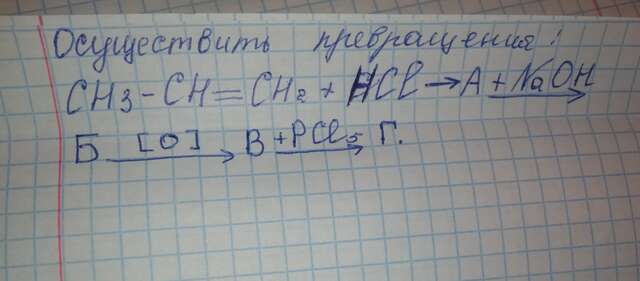 Осуществить превращения:
CH3-CH=CH2 + HCl→A +NaOH→
Б [O]→ В +PCl5→ Г.